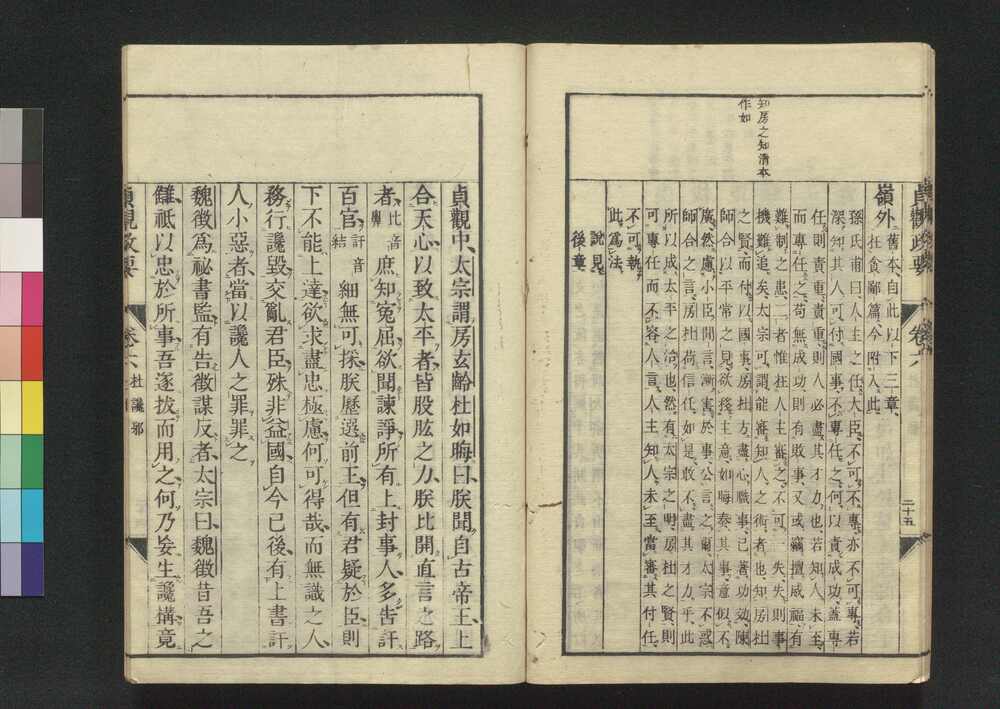 貞觀政要
卷六
二十五
知房之知淸本
作如
嶺外舊本、自此以下三章、
在貪鄙篇、今附入此、
孫氏甫曰、人主之任大臣、不可不專、亦不可專、若
深知其人、可付國事、不專任之、何以責成功、蓋專
任、則責重、責重、則人必盡其才力也、若知人未至、
而專任之、苟無成功、則有敗事、又或竊擅威福、有
難制之患、二者惟在人主審之、不可一失、失則事
機難追矣、太宗可謂能審知人之術者也、知房杜
之賢、而付以國事、房杜方盡心職事、已著功效、陳
師合以平常之見、欲移主意、如晦奏其事、意似不
廣、然慮小臣間言、漸害於事、公言之爾、太宗不惑
師合之言、房杜荷信任如是、敢不盡其才力乎、此
所以成太平之治也、然有太宗之明、房杜之賢、則
可專任而不容人言、人主知人未至、當審其付任、
不可執
此爲法、
說見
後章、
貞觀中、太宗謂房玄齡杜如晦曰、朕聞自古帝王、上
合天心、以致太平者、皆股肱之力、朕比開直言之路
者、比音鼻庶知寃屈、欲聞諫諍、所有上封事人、多告訐
百官、訐音結細無可採、朕歷選前王、但有君疑於臣、則
下不能上達、欲求盡忠極慮、何可得哉、而無識之人、
務行讒毀、交亂君臣、殊非益國、自今已後、有上書訐
人小惡者、當以讒人之罪罪之
魏徵爲祕書監、有告徵謀反者、太宗曰、魏徵昔吾之
讎、祗以忠於所事、吾遂拔而用之、何乃妄生讒構、竟
貞觀政要
卷六
杜讒邪